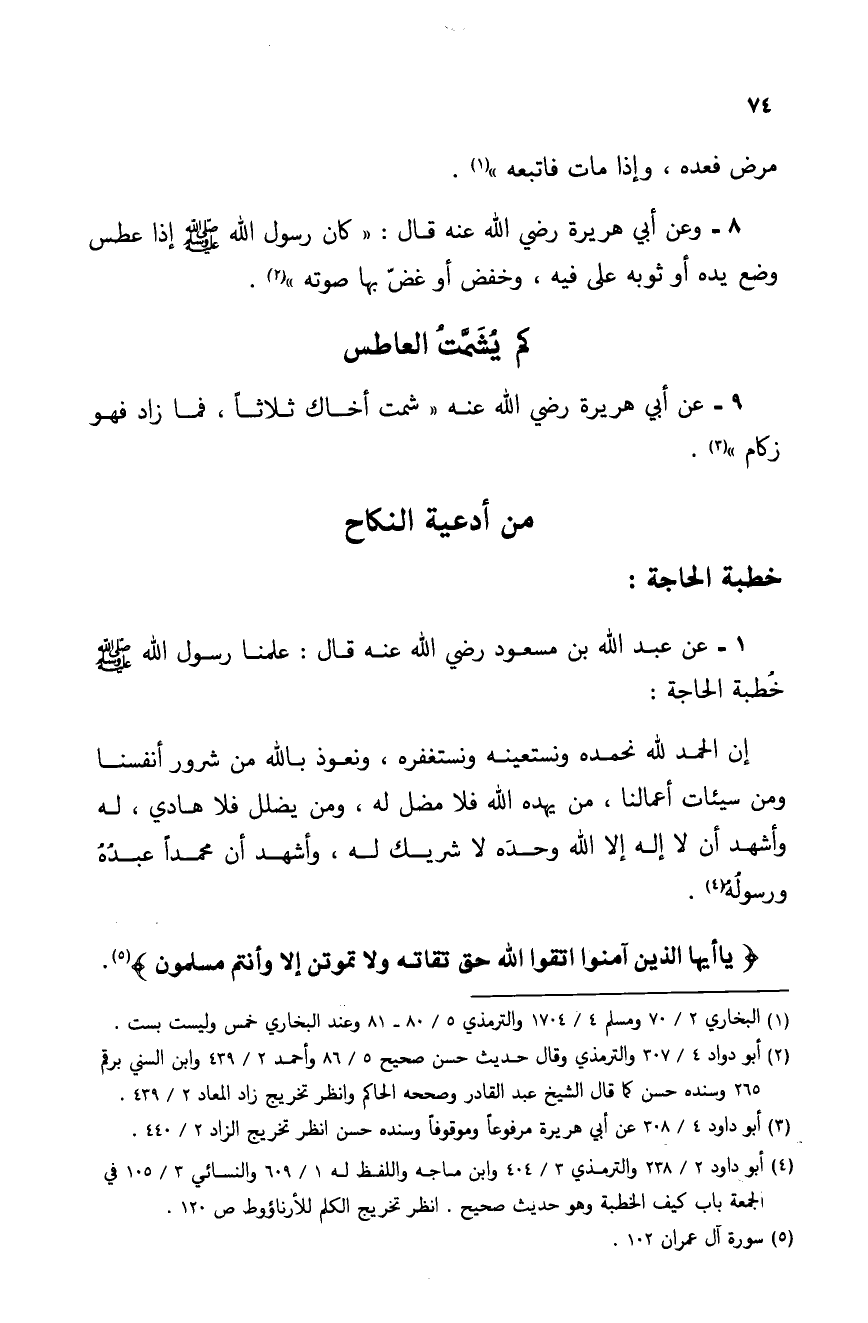 ٧٤
مرض فعده ، وإذا مات فاتبعه »(١) .
٨ ـ وعن أبي هريرة رضي الله عنه قـال : « كان رسول الله ﷺ إذا عطس
وضع يده أو ثوبه على فيه ، وخفض أو غضّ بها صوته »(٢) .
كم يُشَمَّتُ العاطس
٩ ـ عن أبي هريرة رضي الله عنـه « شمت أخـاك ثـلاثـاً ، فمـا زاد فهـو
زكام »(٣) .
من أدعية النكاح
خطبة الحاجة :
١ ـ عن عبـد الله بن مسعـود رضي الله عنـه قـال : علمنـا رسـول الله ﷺ
خُطبة الحاجة :
إن الحمـد لله نحمـده ونستعينـه ونستغفره ، ونعـوذ بـالله من شرور أنفسنـا
ومن سيئات أعمالنا ، من يهده الله فلا مضل له ، ومن يضلل فلا هـادي ، لـه
وأشهـد أن لا إلـه إلا الله وحـدَه لا شريـك لـه ، وأشهـد أن محمـداً عبـدُهُ
ورسولُهُ(٤) .
﴿ ياأيها الذين آمنوا اتقوا الله حق تقاتـه ولا تموتن إلا وأنتم مسلمون ﴾(٥).
(١) البخاري ٢ / ٧٠ ومسلم ٤ / ١٧٠٤ والترمذي ٥ / ٨٠ ـ ٨١ وعند البخاري خمس وليست بست .
(٢) أبو دواد ٤ / ٣٠٧ والترمذي وقال حـديث حسن صحيح ٥ / ٨٦ وأحمـد ٢ / ٤٣٩ وابن السني برقم
٢٦٥ وسنده حسن كما قال الشيخ عبد القادر وصححه الحاكم وانظر تخريج زاد المعاد ٢ / ٤٣٩ .
(٣) أبو داود ٤ / ٣٠٨ عن أبي هريرة مرفوعاً وموقوفاً وسنده حسن انظر تخريج الزاد ٢ / ٤٤٠ .
(٤) أبو داود ٢ / ٢٣٨ والترمـذي ٣ / ٤٠٤ وابن مـاجـه واللفـظ لـه ١ / ٦٠٩ والنسـائي ٣ / ١٠٥ في
الجمعة باب كيف الخطبة وهو حديث صحيح . انظر تخريج الكلم للأرناؤوط ص ١٢٠ .
(٥) سورة آل عمران ١٠٢ .